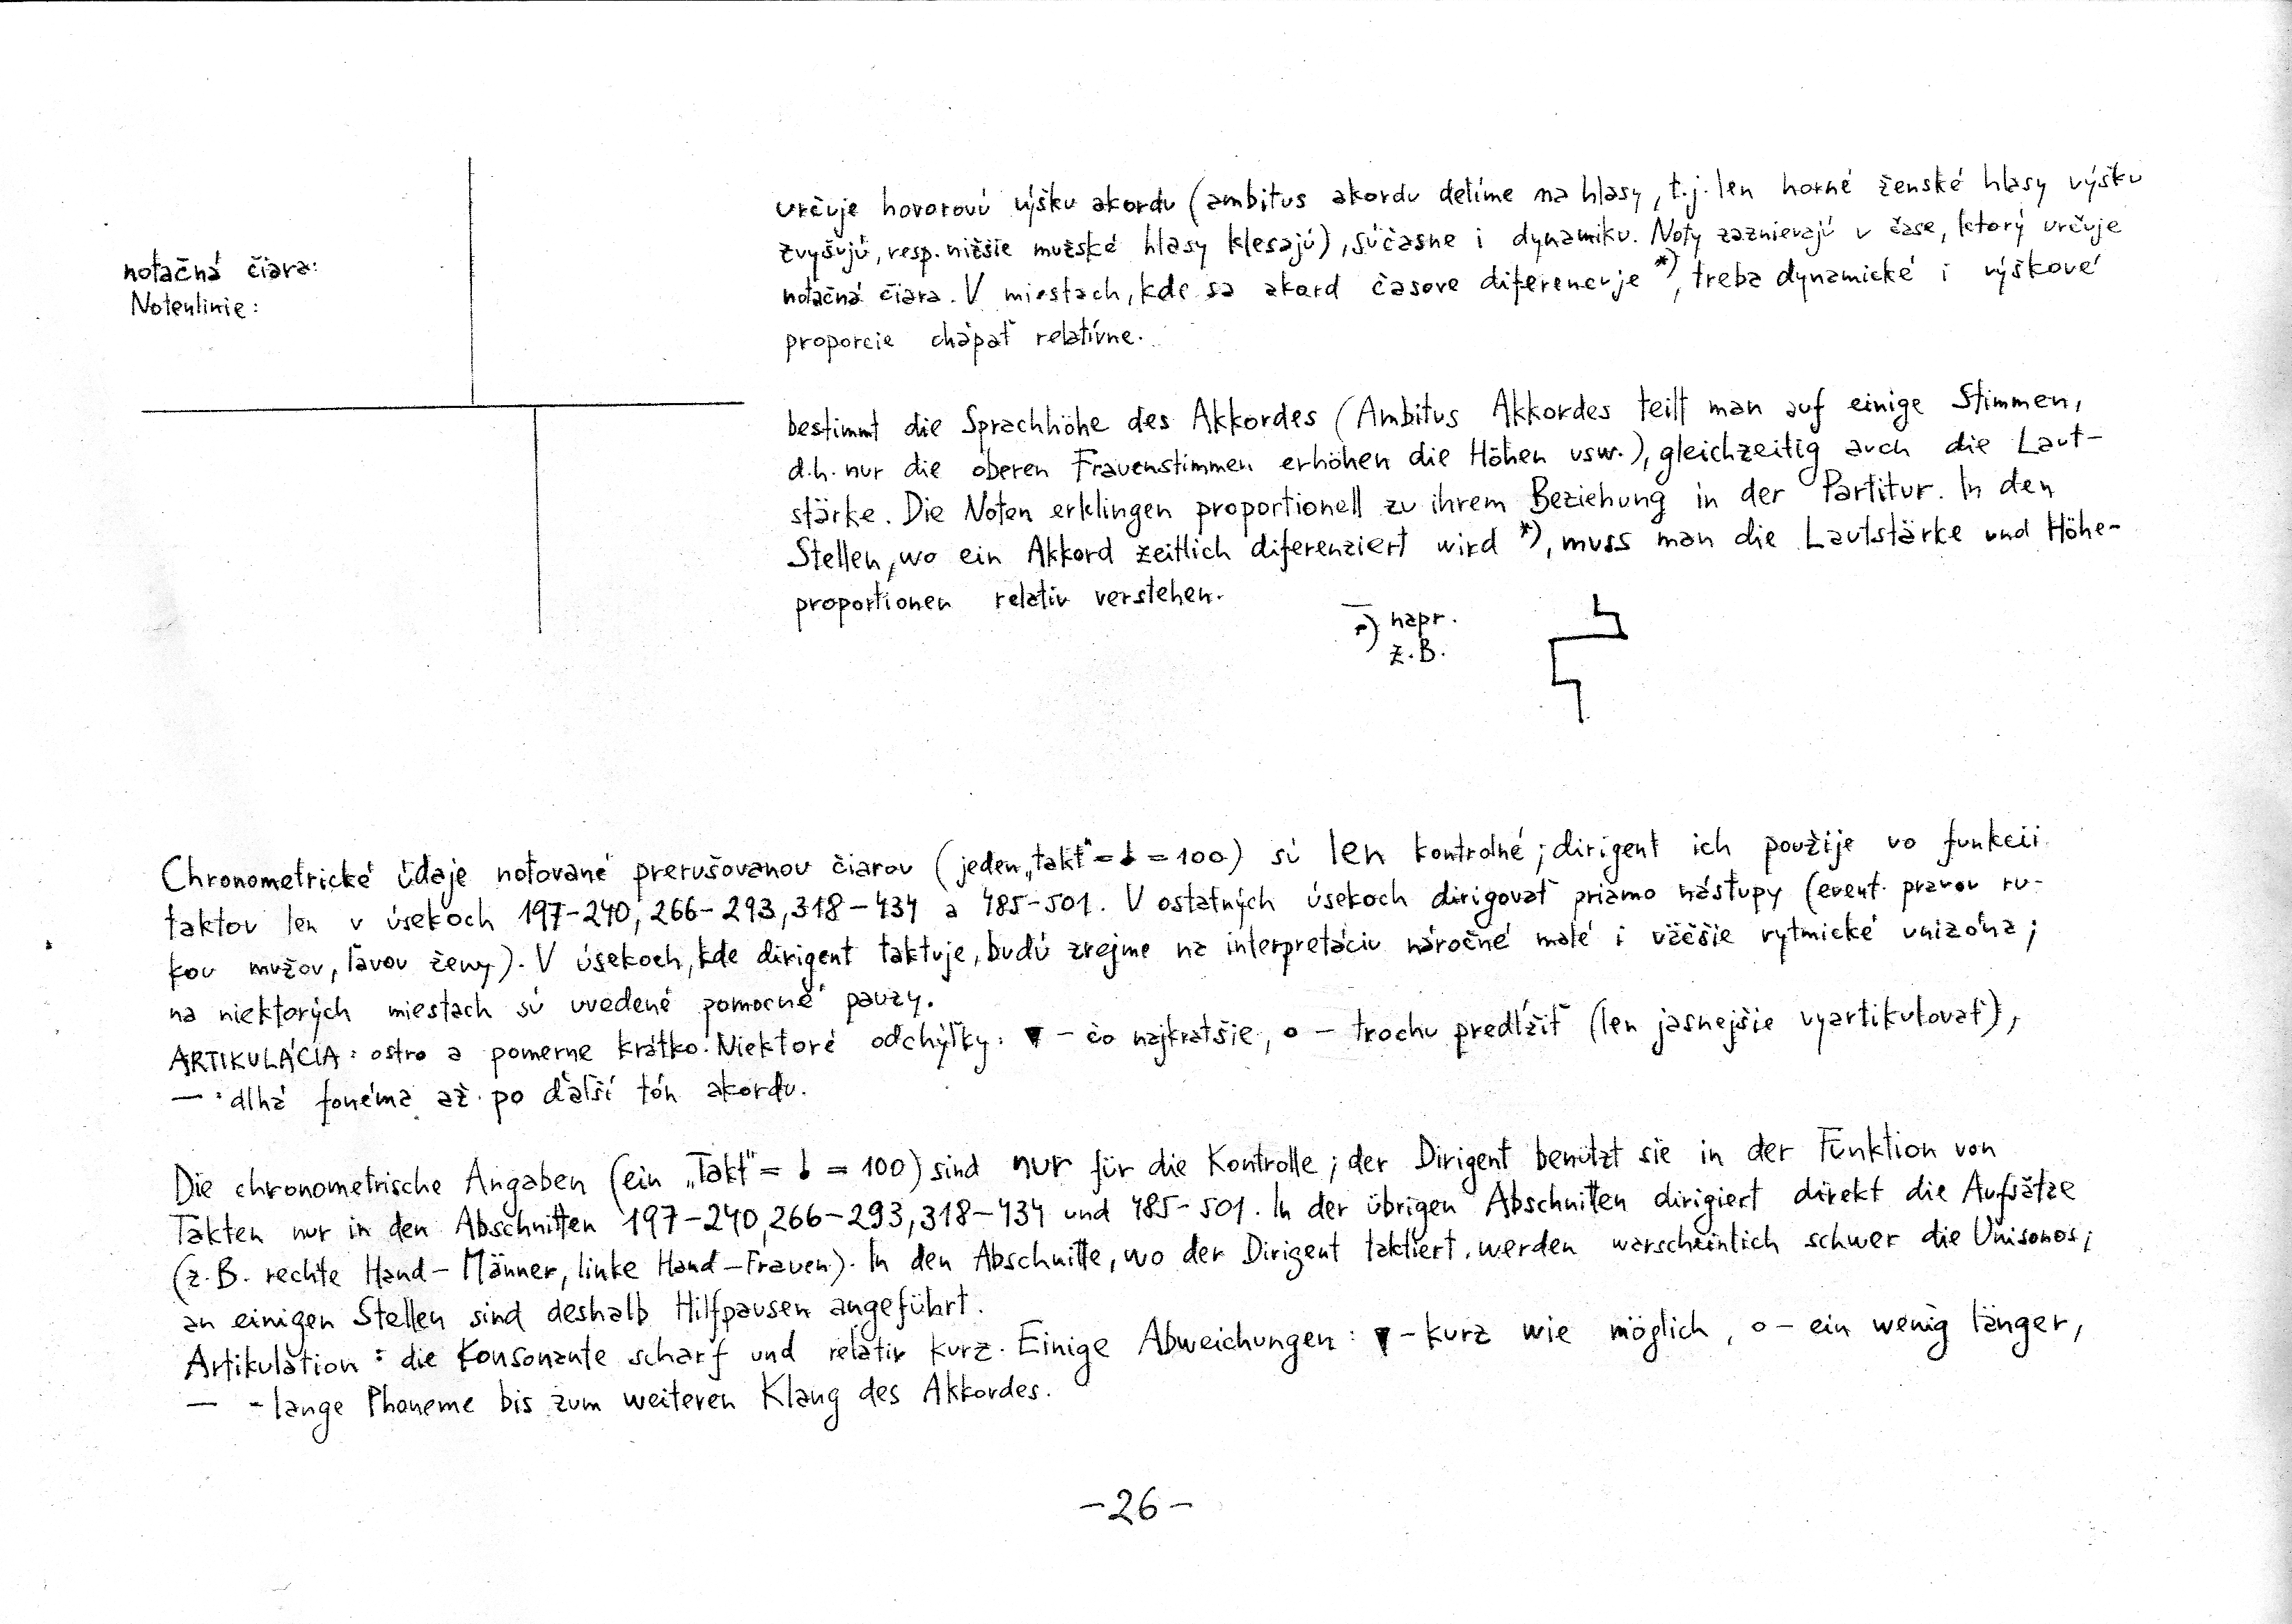 notačná čiara:
Notenlinie:
určuje hovorovú výšku akordu (ambitus akordu delíme na hlasy, t.j. len horné ženské hlasy výšku
zvyšujú, resp. nižšie mužské hlasy klesajú), súčasne i dynamiku. Noty zaznievajú v čase, ktorý určuje
notačná čiara. V miestach, kde sa akord časove diferencuje *), treba dynamické i výškové
proporcie chápať relatívne.
bestimmt die Sprachhöhe des Akkordes (Ambitus Akkordes teilt man auf einige Stimmen,
d.h. nur die oberen Frauenstimmen erhöhen die Höhen usw.), gleichzeitig auch die Laut-
stärke. Die Noten erklingen proportionell zu ihrem Beziehung in der Partitur. In den
Stellen, wo ein Akkord zeitlich diferenziert wird *), muss man die Lautstärke und Höhe-
proportionen relativ verstehen.
*) napr.
z.B.
Chronometrické údaje notované prerušovanou čiarou (jeden „takt" = ♩ = 100) sú len kontrolné; dirigent ich použije vo funkcii
taktov len v úsekoch 197-240, 266-293, 318-434 a 485-501. V ostatných úsekoch dirigovať priamo nástupy (event. pravou ru-
kou mužov, ľavou ženy). V úsekoch, kde dirigent taktuje, budú zrejme na interpretáciu náročné malé i väčšie rytmické unizóna;
na niektorých miestach sú uvedené pomocné pauzy.
ARTIKULÁCIA: ostro a pomerne krátko. Niektoré odchýľky: ▼ - čo najkratšie, o - trochu predĺžiť (len jasnejšie vyartikulovať),
— : dlhá fonéma až po ďalší tón akordu.
Die chronometrische Angaben (ein „Takt" = ♩ = 100) sind nur für die Kontrolle; der Dirigent benützt sie in der Funktion von
Takten nur in den Abschnitten 197-240, 266-293, 318-434 und 485-501. In der übrigen Abschnitten dirigiert direkt die Aufsätze
(z.B. rechte Hand - Männer, linke Hand - Frauen). In den Abschnitte, wo der Dirigent taktiert, werden warscheinlich schwer die Unisonos;
an einigen Stellen sind deshalb Hilfpausen angeführt.
Artikulation: die Konsonante scharf und relativ kurz. Einige Abweichungen: ▼ - kurz wie möglich, o - ein wenig länger,
— - lange Phoneme bis zum weiteren Klang des Akkordes.
-26-